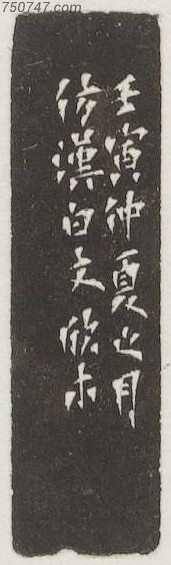 750747.com
壬寅仲夏之月
仿漢白文欣木